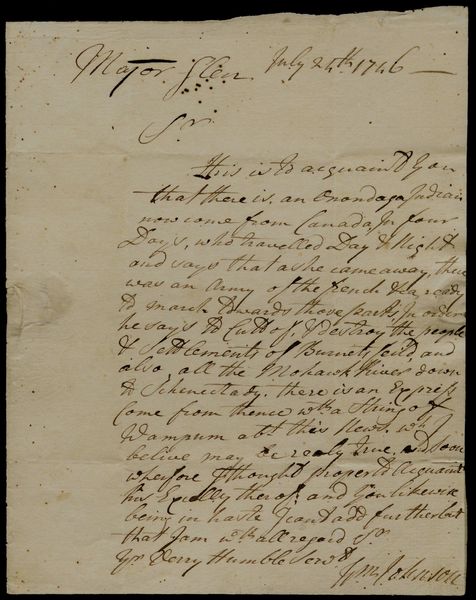 Major Glen July 24th 1746
Sr
This is to acquaint You
that there is an Onondaga Indian
now come from Canada In four
Days, who travelled Day & Night
and says that as he came away, there
was an Army of the french &ca ready
to march towards those parts, In order
he says to Cutt of, & Destroy the people
& Settlements of Burnets feild, and
also all the Mohawk River down
to Schenectady. there is an Express
come from thence wth a String of
Wampum abt this News. wh I
belive may be realy true, and Soon
wherefore I thought proper to Acquaint
his Excelly therof, and You likewise
being in haste I cant add further but
that I am wth all regard Sr
Yr Verry Humble Servt
Wm Johnson